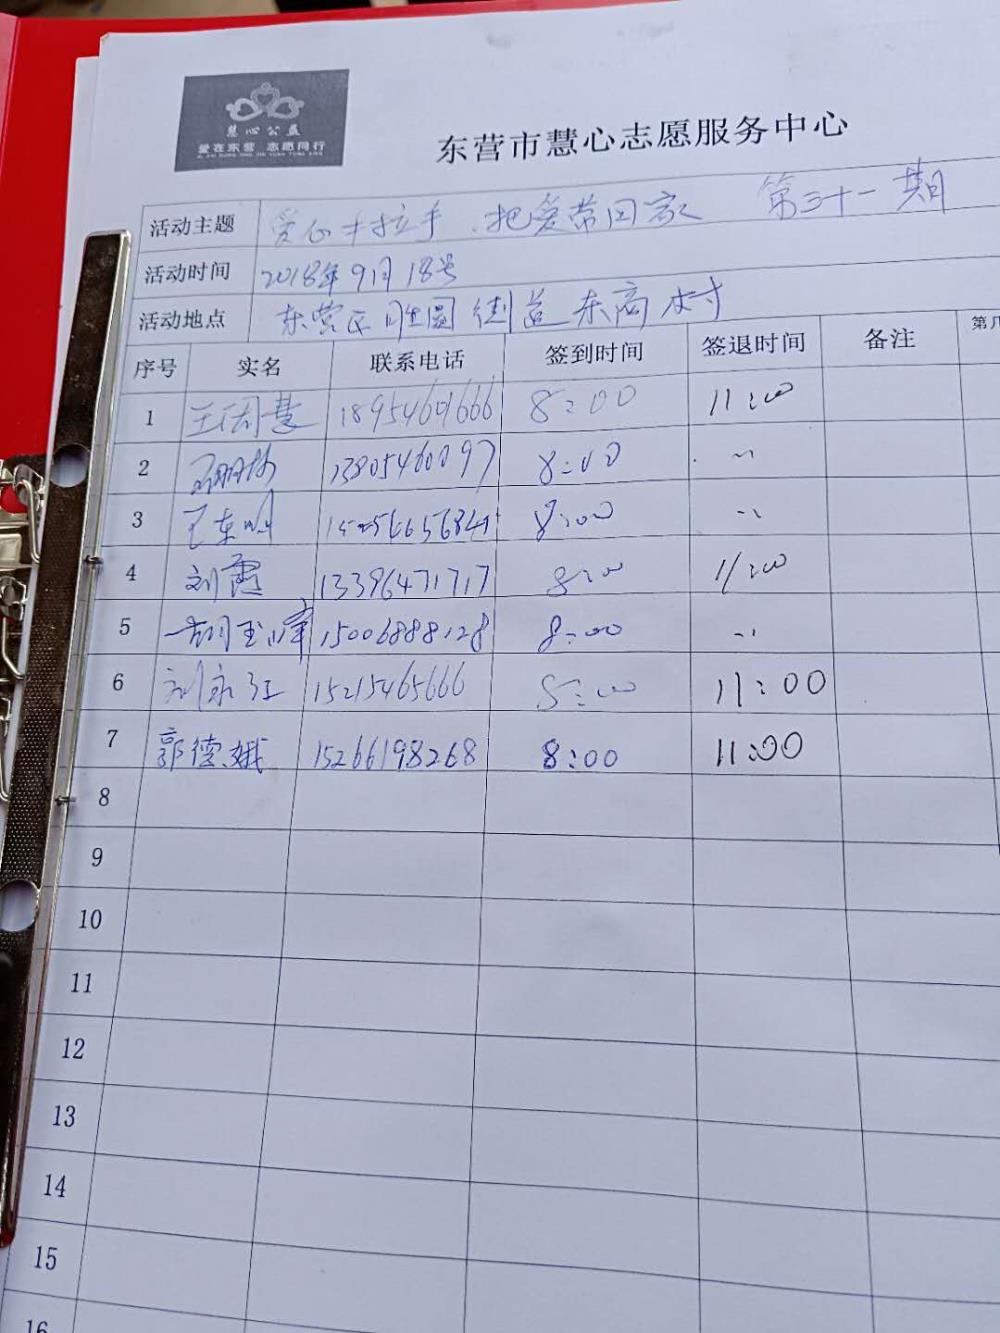 慧心公益
爱在东营 志愿同行
东营市慧心志愿服务中心
活动主题 爱心手拉手、把爱带回家 第三十一期
活动时间 2018年9月18号
活动地点 东营区胜园街道东商村
序号 实名 联系电话 签到时间 签退时间 备注 第几
1 王周慧 18954601666 8:00 11:00
2 13805460097 8:00 〃
3 8:00 〃
4 刘霞 13396471717 8:00 11:00
5 胡玉峰 15006888128 8:00 〃
6 刘永江 15215465666 8:00 11:00
7 郭德娥 15266198268 8:00 11:00
8
9
10
11
12
13
14
15
16